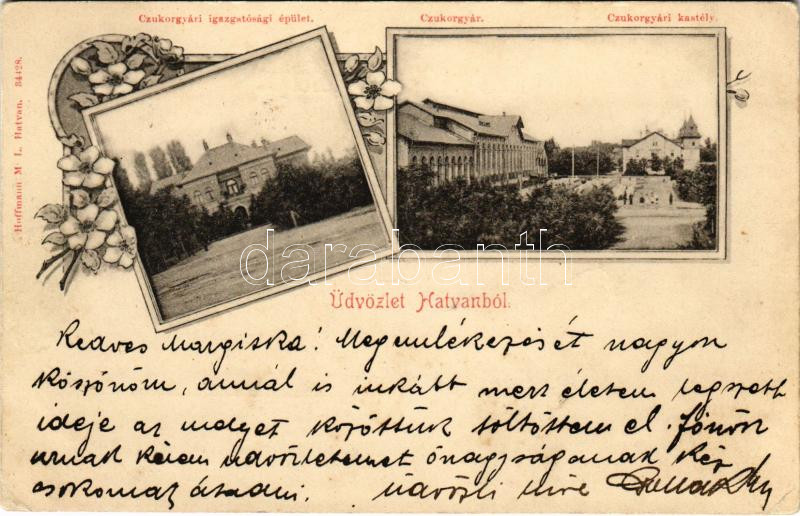 Czukorgyári igazgatósági épület. Czukorgyár. Czukorgyári kastély.
Hoffmann M. L. Hatvan. 34428.
darabanth
Üdvözlet Hatvanból.
Kedves Margiska! Megemlékezését nagyon
köszönöm, annál is inkább mert életem legszebb
ideje az melyet közöttük töltöttem el. Főnök
urnak kérem üdvözletemet őnagyságának kéz
csókomat átadni. Üdvözli híve